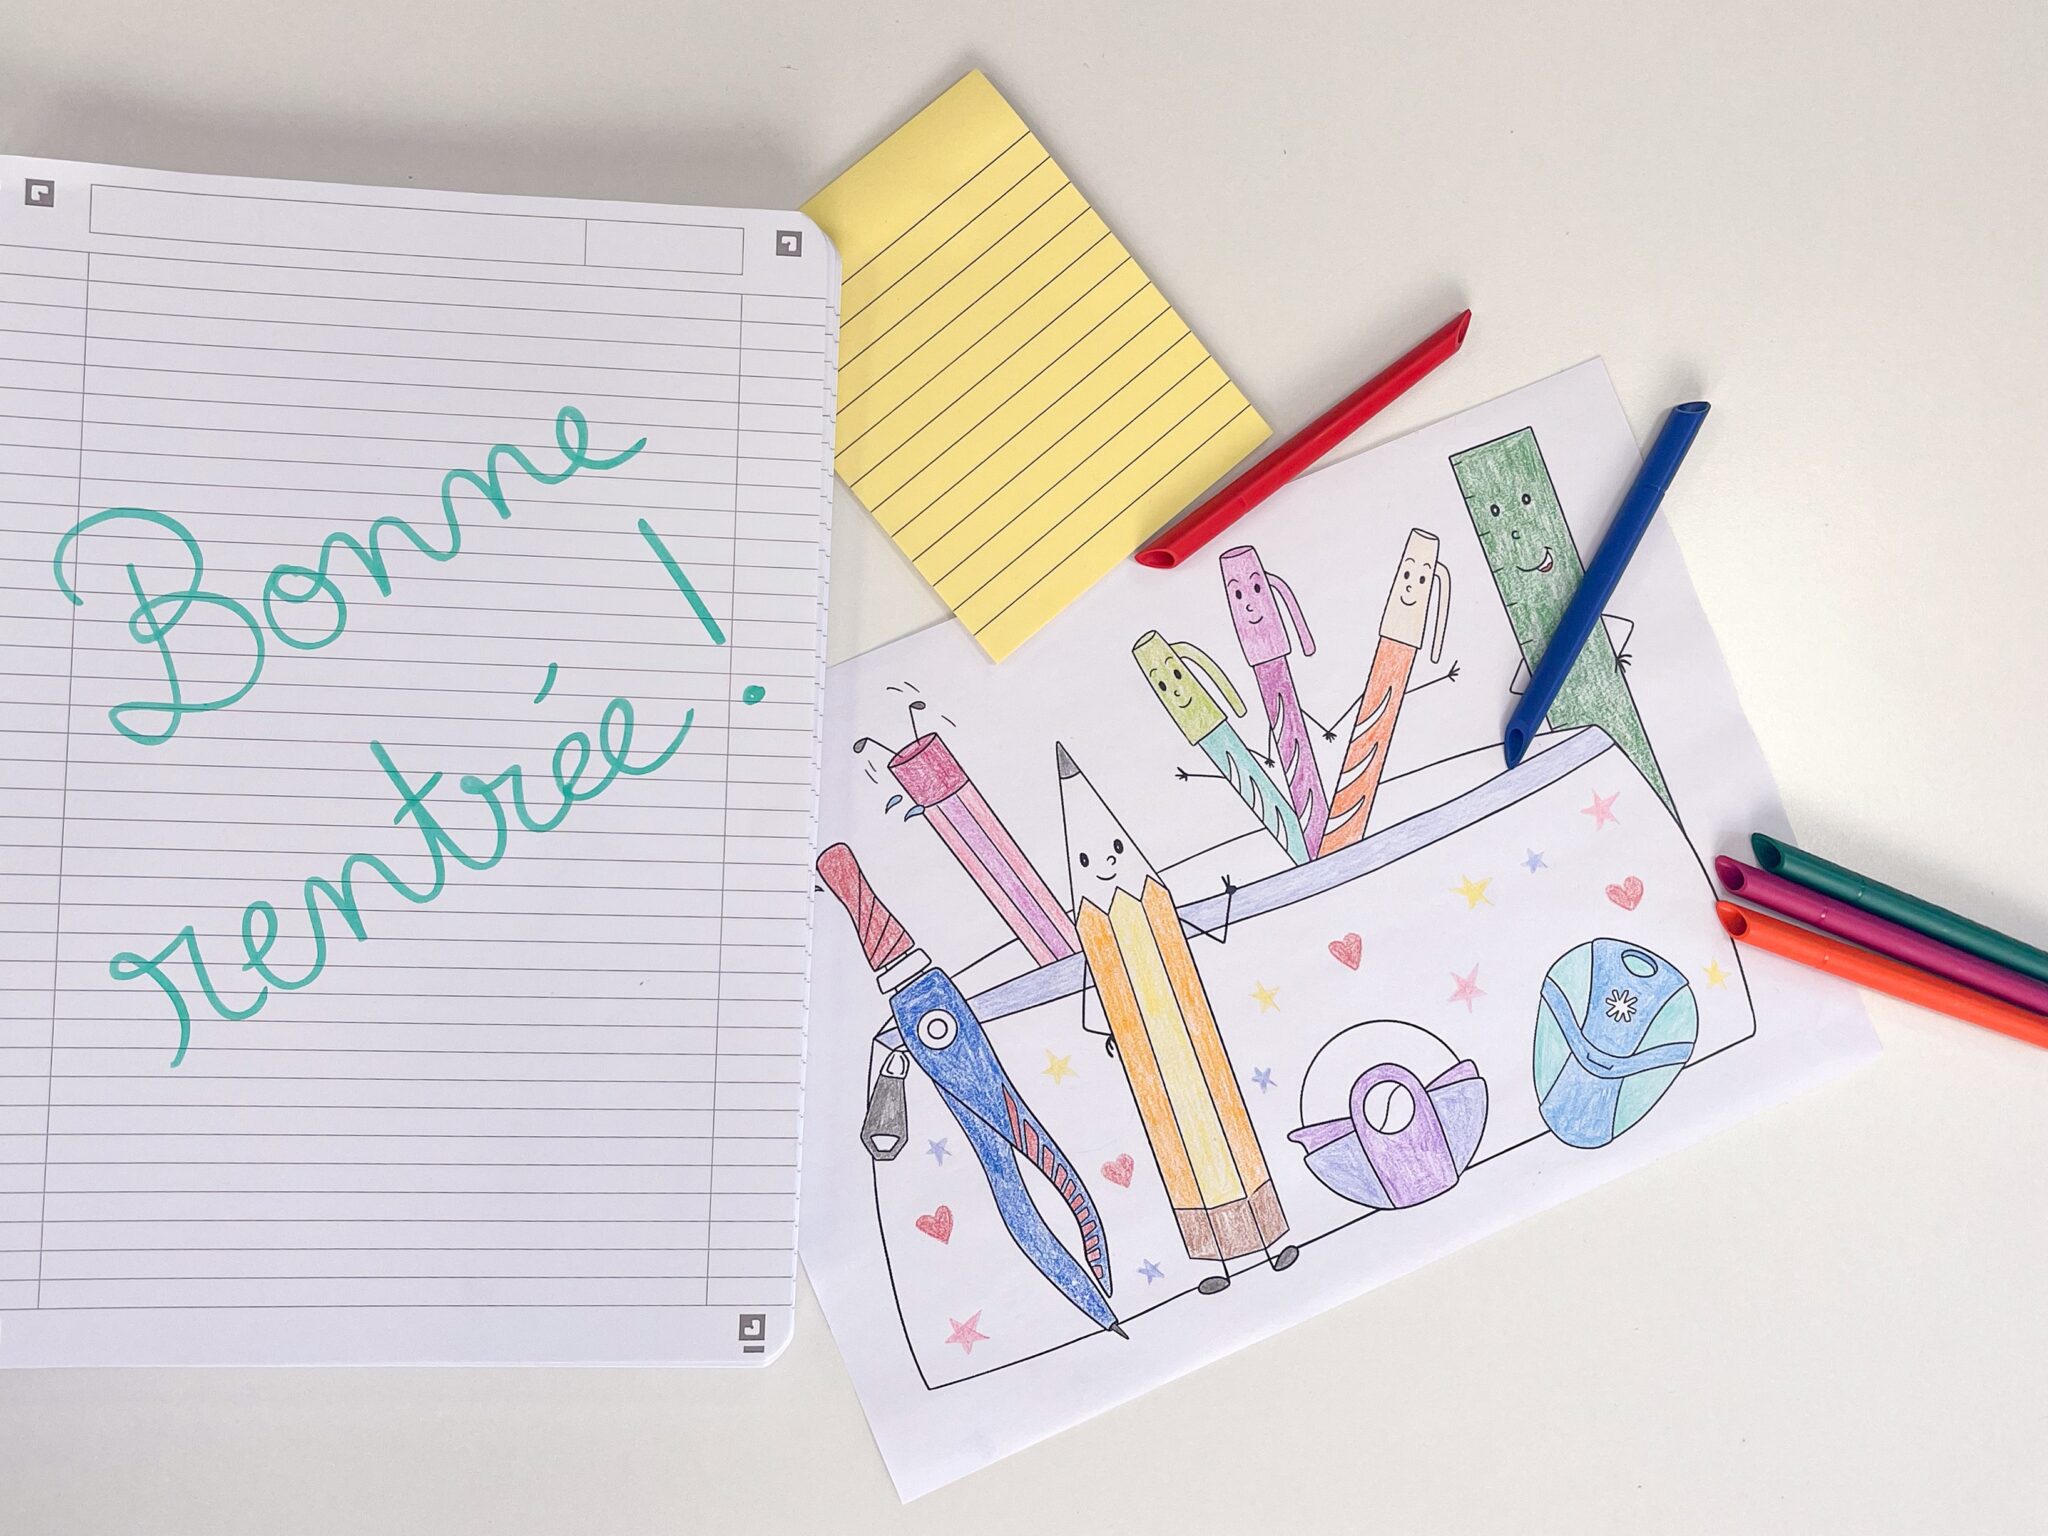 Bonne
rentrée !